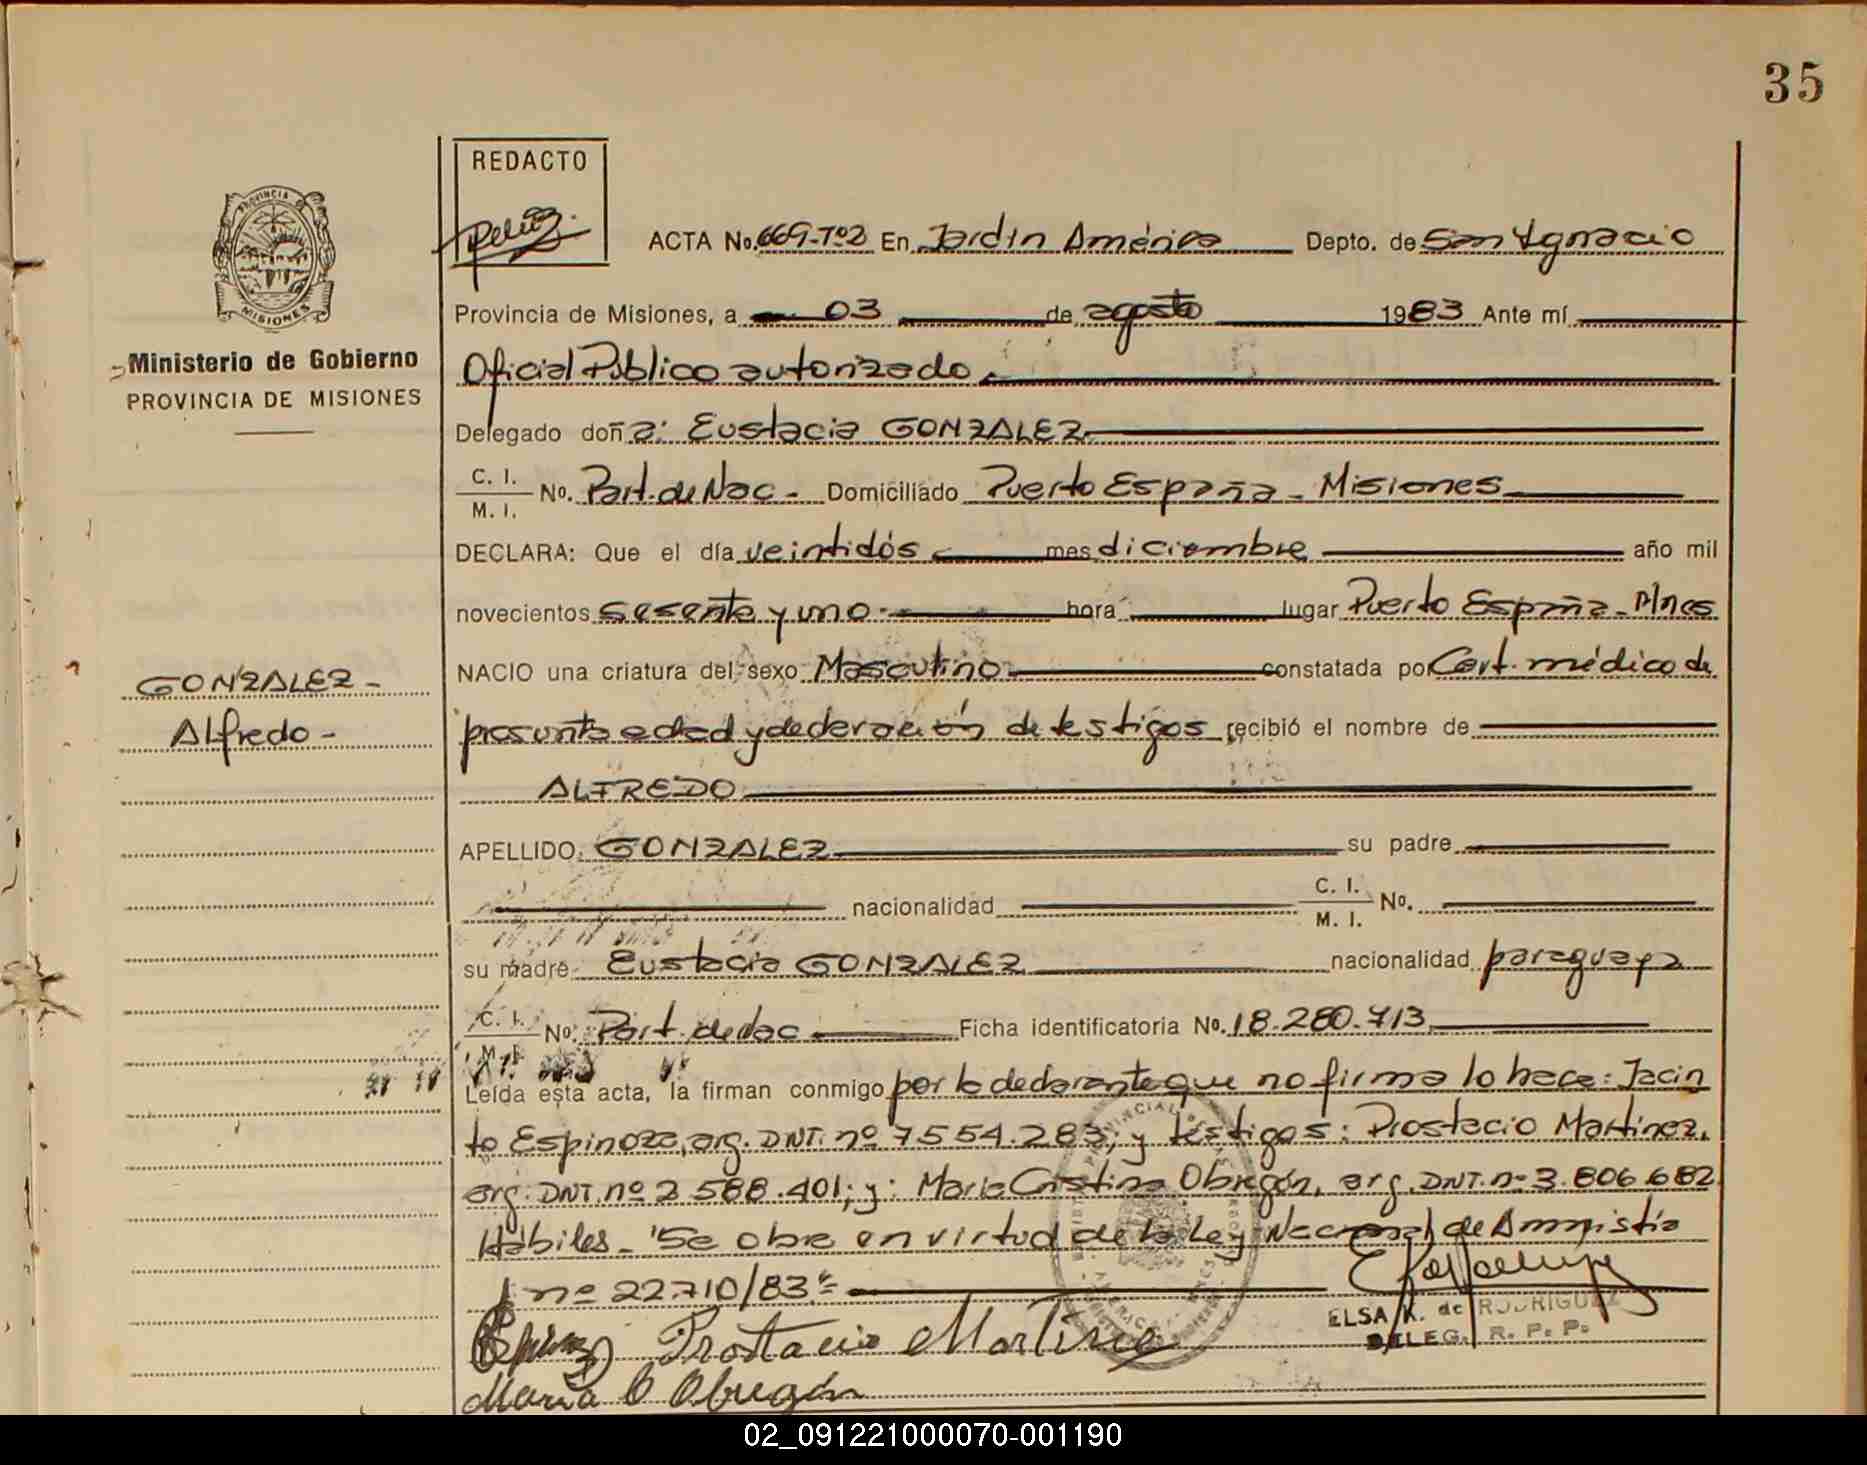 35
REDACTO
ACTA No. 669-Tº2 En Jardín América Depto. de San Ignacio
Provincia de Misiones, a 03 de agosto 1983 Ante mí
Oficial Público autorizado.
Delegado doña: Eustacia GONZALEZ.
C. I. / M. I. No. Part. de Nac - Domiciliado Puerto España - Misiones
DECLARA: Que el día veintidós mes diciembre año mil
novecientos sesenta y uno. hora lugar Puerto España - Mnes
NACIO una criatura del sexo Masculino. constatada por Cert. médico de
presunta edad y declaración de testigos recibió el nombre de
ALFREDO
APELLIDO: GONZALEZ su padre
nacionalidad C. I. / M. I. No.
su madre Eustacia GONZALEZ nacionalidad paraguaya
C. I. / M. I. No. Part. de Nac Ficha identificatoria No. 18.280.713
Leída esta acta, la firman conmigo por la declarante que no firma lo hace: Jacin
to Espinoza, arg. DNI. nº 7.554.283; y testigos: Prostacio Martinez,
arg. DNI. nº 2.588.401; y: Maria Cristina Obregón, arg. DNI. nº 3.806.682
Hábiles - "Se obra en virtud de la Ley Nacional de Amnistía
nº 22.710/83"-
ELSA K. de RODRIGUEZ
DELEG. R. P. P.
Prostacio Martinez
Maria C Obregón
PROVINCIA DE
MISIONES
Ministerio de Gobierno
PROVINCIA DE MISIONES
GONZALEZ -
Alfredo -
02_091221000070-001190